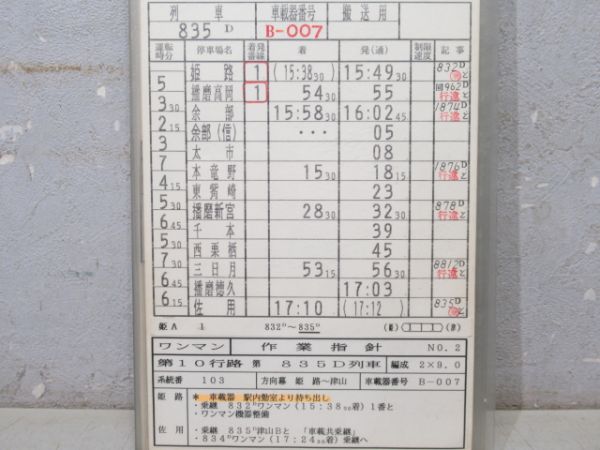 列車 車載器番号 搬送用
835D B-007
運転時分 停車場名 着発番線 着 発(通) 制限速度 記事
姫路 1 (15:38 30) 15:49 30 832D と
5
播磨高岡 1 54 30 55 回962D 行違と
3 30
余部 15:58 30 16:02 45 1874D 行違と
2 15
余部(信) ・・・ 05
3
太市 08
7
本竜野 15 30 18 15 1876D 行違と
4 15
東觜崎 23
5 30
播磨新宮 28 30 32 30 878D 行違と
6 45
千本 39
5
西栗栖 45
7 30
三日月 53 15 56 30 8812D 行違と
6 45
播磨徳久 17:03
6 15
佐用 17:10 (17:12) 835D と
姫A 1 832D~835D
ワンマン 作業指針 NO.2
第10行路 第 835D列車 編成 2×9.0
系統番 103 方向幕 姫路~津山 車載器番号 B-007
姫路 * 車載器 駅内勤室より持ち出し
・乗継 832Dワンマン(15:38 30着)1番と
・ワンマン機器整備
佐用 ・乗継 835D津山Bと 「車載共乗継」
・834Dワンマン(17:24 30着)乗継へ